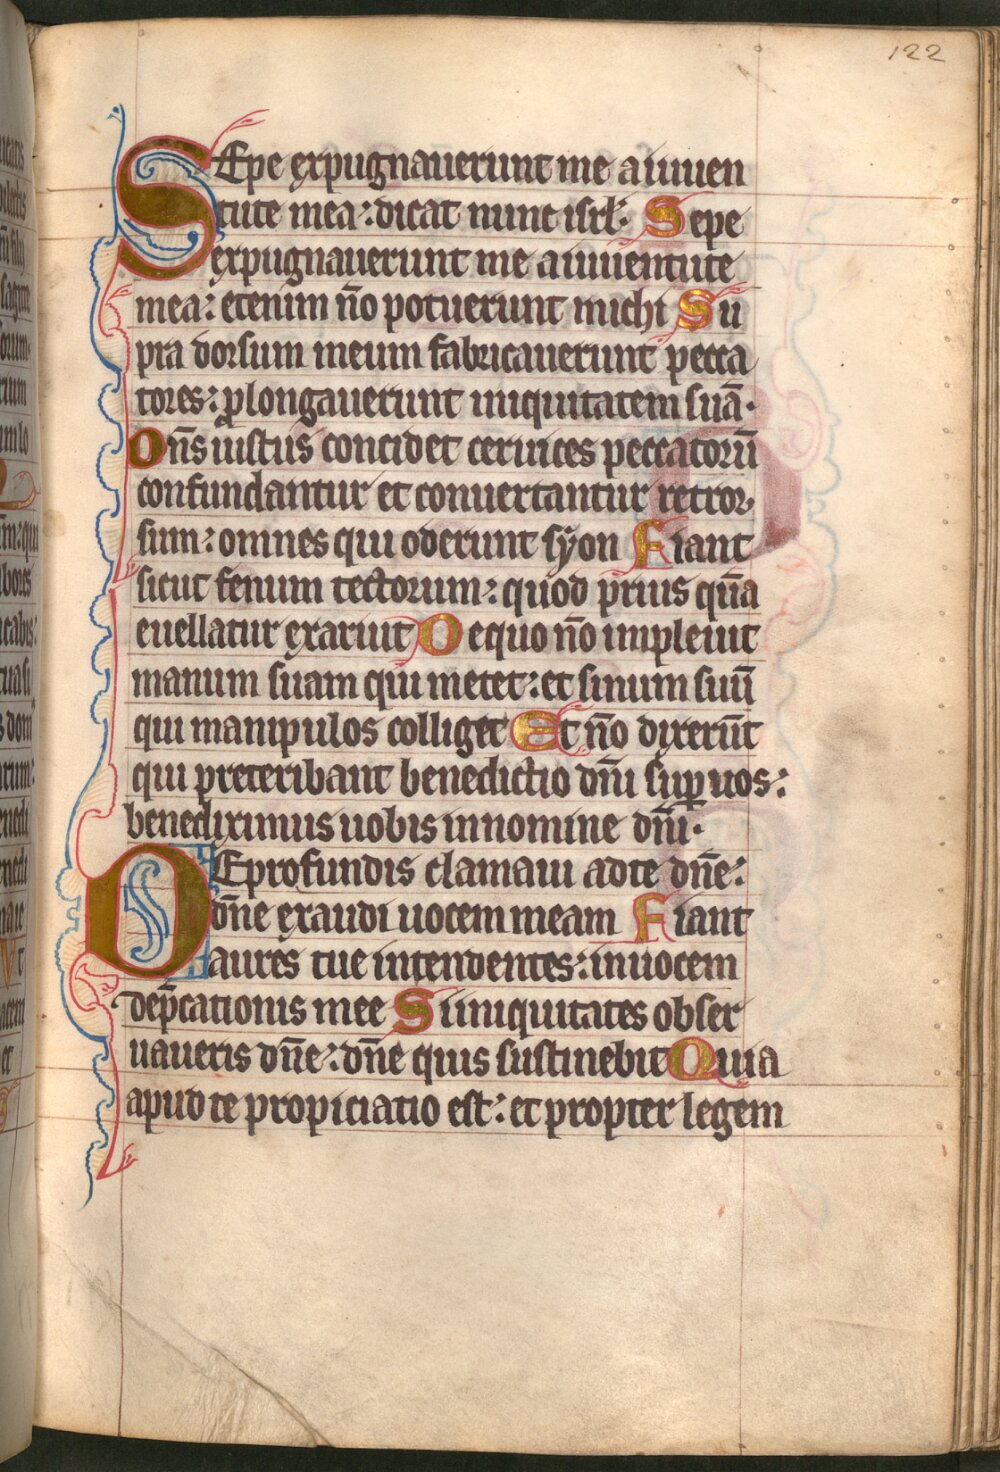 122
SEpe expugnauerunt me a iuuen
tute mea: dicat nunc isrl. Sepe
expugnauerunt me a iuuentute
mea: etenim nõ potuerunt michi Su
pra dorsum meum fabricauerunt pecca
tores: ꝓlongauerunt iniquitatem suã.
Dñs iustus concidet ceruices peccatorũ
confundantur et conuertantur retror
sum: omnes qui oderunt syon Fiant
sicut fenum tectorum: quod prius qũa
euellatur exaruit De quo nõ impleuit
manum suam qui metet: et sinum suũ
qui manipulos colliget Et nõ dixerũt
qui preteribant benedictio dñi suꝑ uos:
benediximus uobis in nomine dñi.
DE profundis clamaui ad te dñe:
dñe exaudi uocem meam Fiant
aures tue intendentes: in uocem
dep̃cationis mee Si iniquitates obser
uaueris dñe: dñe quis sustinebit Quia
apud te propiciatio est: et propter legem